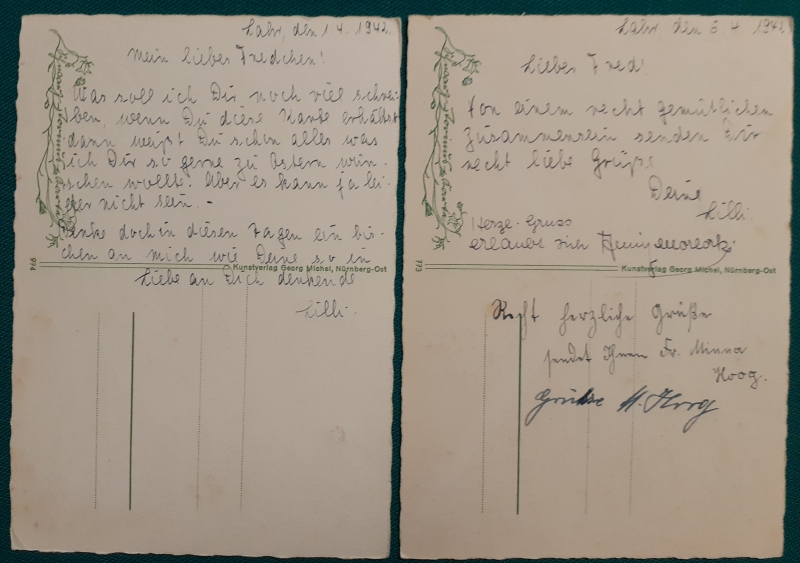 Lahr, den 1 4. 1942.
Mein lieber Fredchen!
Was soll ich Dir noch viel schrei-
ben, wenn Du diese Karte erhältst
dann weißt Du schon alles was
ich Dir so gerne zu Ostern wün-
schen wollt. Aber es kann ja lei-
der nicht sein. -
Denke doch in diesen Tagen ein bis-
chen an mich wie Deine so in
Liebe an Dich denkende
Lilli.
974
Kunstverlag Georg Michel, Nürnberg-Ost
Lahr, den 6 4 1942.
Lieber Fred!
Von einem recht gemütlichen
Zusammensein senden Dir
recht liebe Grüße
Deine
Lilli.
Herze. Gruss
erlaubt sich
773
Kunstverlag Georg Michel, Nürnberg-Ost
Recht herzliche Grüße
sendet Ihnen Fr. Minna
Hoog.
Grüsse H. Hoog